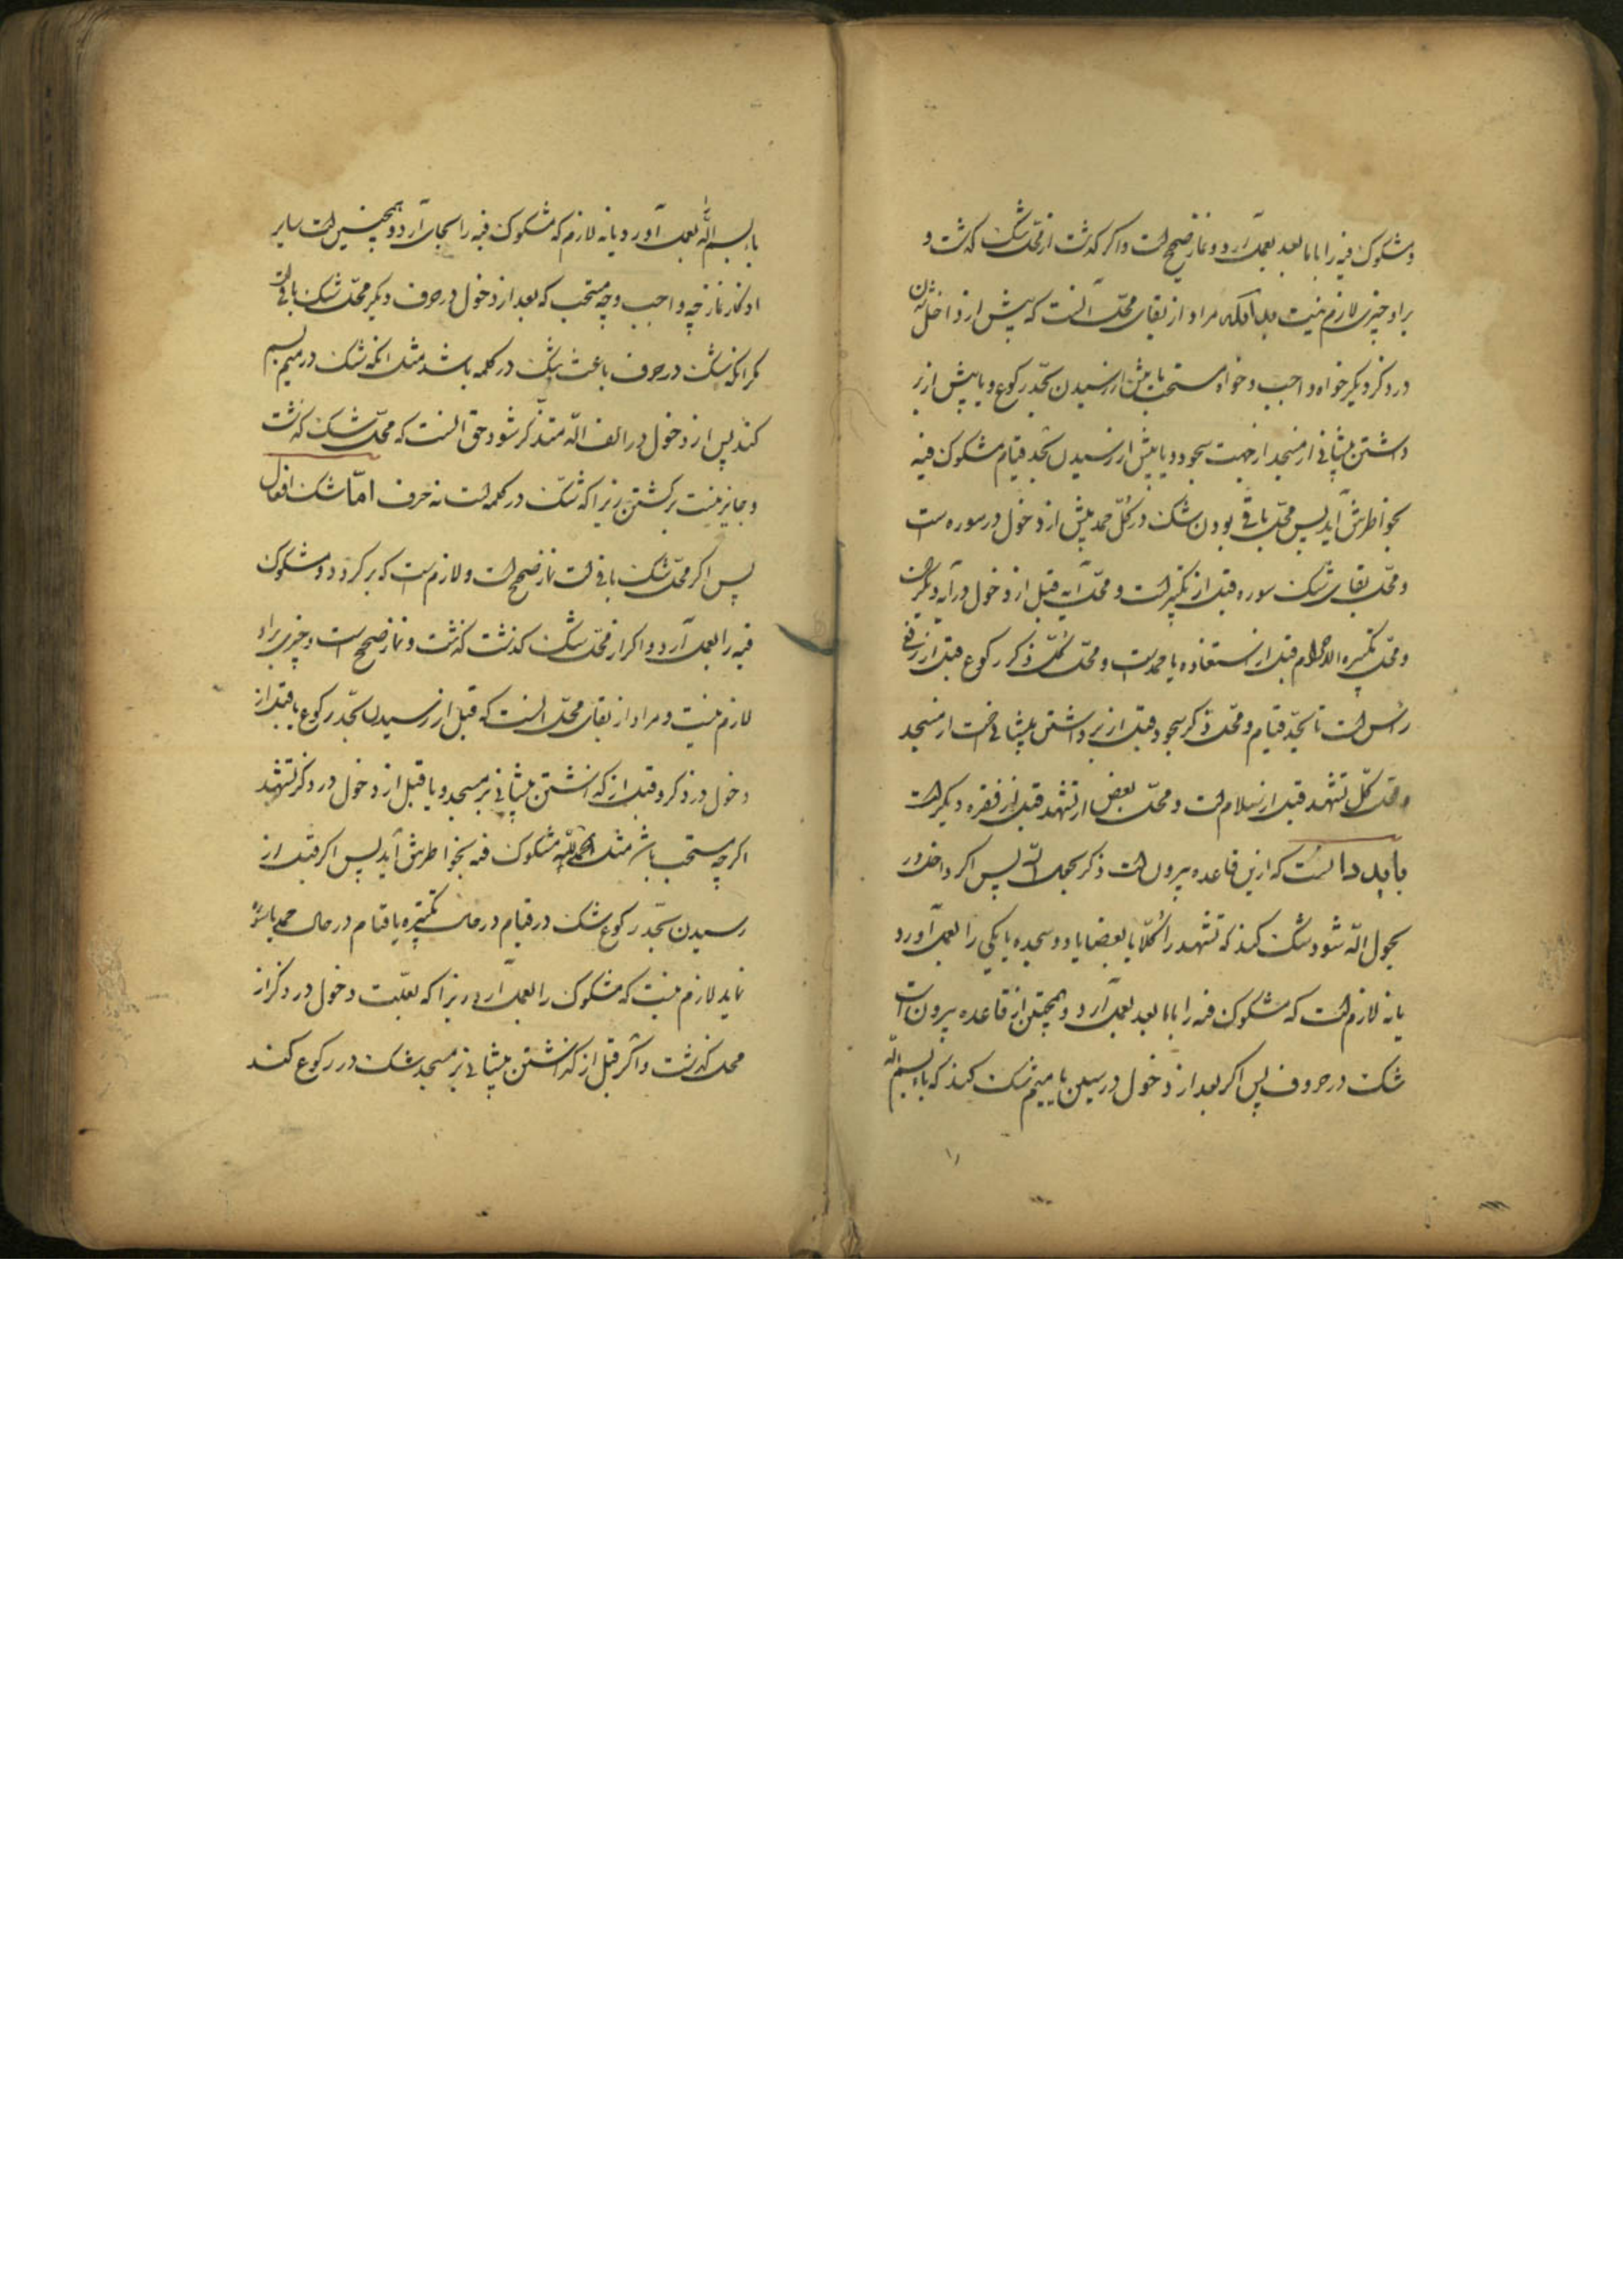 و مشکوک فیه را با ما بعد بعمل آرد و نماز صحیح است و اگر گذشت از محل شک گذشت و
بر او چیزی لازم نیست بدانکه مراد از بقای محل آنست که پیش از داخل شدن
در ذکر دیگر خواه واجب و خواه مستحب یا پیش از رسیدن بحد رکوع و یا پیش از بر
داشتن پیشانی از مسجد از جهت سجود و یا پیش از رسیدن بحد قیام مشکوک فیه
بخواطرش آید پس محل باقی بودن شک در کل حمد پیش از دخول در سوره است
و محل بقای شک سوره قبل از تکبیر است و محل آیه قبل از دخول در آیه دیگر است
و محل تکبیرة الاحرام قبل از استعاذه یا حمد است و محل کل ذکر رکوع قبل از رفع
رأس است تا بحد قیام و محل ذکر سجود قبل از بر داشتن پیشانی است از مسجد
و محل کل تشهد قبل از سلام است و محل بعض از تشهد قبل از فقره دیگر است
باید دانست که ازین قاعده بیرون است ذکر بحول الله پس اگر داخل در
بحول الله شود شک کند که تشهد را کلا یا بعضا یا دو سجده یا یکی را بعمل آورد
یا نه لازم است که مشکوک فیه را با ما بعد بعمل آرد و همچنین از قاعده بیرون است
شک در حروف پس اگر بعد از دخول در سین یا میم شک کند که باء بسم الله
باء بسم الله بعمل آورد یا نه لازم که مشکوک فیه را بجای آرد و همچنین است سایر
اذکار نماز چه واجب و چه مستحب که بعد از دخول در حرف دیگر محل شک باقی است
مگر آنکه شک در حرف باعث شک در کلمه باشد مثل آنکه شک در میم بسم
کند پس از دخول در الف الله متذکر شود حق آنست که محل شک گذشت
و جایز نیست برگشتن زیرا که شک در کلمه است نه حرف اما شک افعال
پس اگر محل شک باقی است نماز صحیح است و لازم است که بر گردد و مشکوک
فیه را بعمل آرد و اگر از محل شک گذشت گذشت و نماز صحیح است و چیزی بر او
لازم نیست و مراد از بقای محل آنست که قبل از رسیدن بحد رکوع یا قبل از
دخول در ذکر و قبل از گذاشتن پیشانی بر مسجد و یا قبل از دخول در ذکر تشهد
اگر چه مستحب باشد مثل الحمد لله مشکوک فیه بخواطرش آید پس اگر قبل از
رسیدن بحد رکوع شک در قیام در حال تکبیره یا قیام در حال حمد یا سوره
نماید لازم نیست که مشکوک را بعمل آرد زیرا که بعلت دخول در ذکر از
محل گذشت و اگر قبل از گذاشتن پیشانی بر مسجد شک در رکوع کند